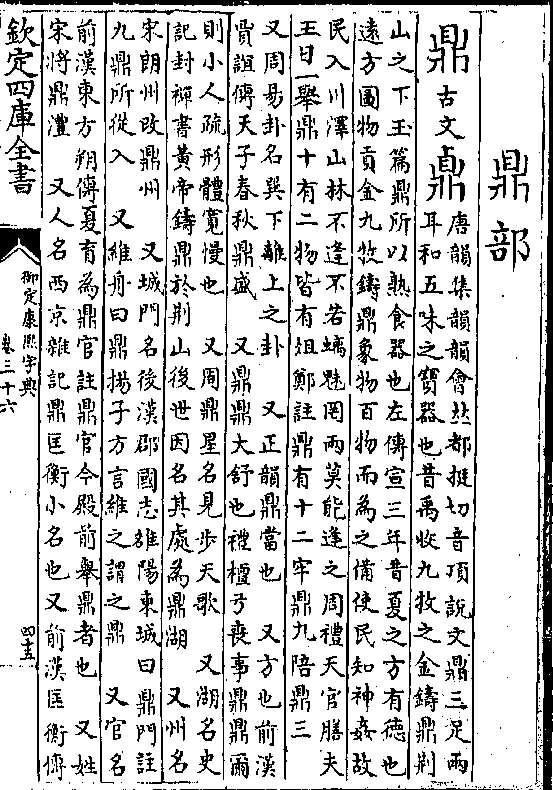 鼎部
鼎 古文
唐韻集韻韻會𠀤都挺切音頂說文鼎三足兩
耳和五味之寶器也昔禹收九牧之金鑄鼎荆
山之下玉篇鼎所以熟食器也左傳宣三年昔夏之方有德也
遠方圖物貢金九牧鑄鼎象物百物而為之備使民知神姦故
民入川澤山林不逢不若螭魅罔兩莫能逢之周禮天官膳夫
王日一舉鼎十有二物皆有俎鄭註鼎有十二牢鼎九陪鼎三
又周易卦名巽下離上之卦 又正韻鼎當也 又方也前漢
賈誼傳天子春秋鼎盛 又鼎鼎大舒也禮檀弓喪事鼎鼎爾
則小人疏形體寬慢也 又周鼎星名見步天歌 又湖名史
記封禪書黃帝鑄鼎於荆山後世因名其處為鼎湖 又州名
宋朗州改鼎州 又城門名後漢郡國志雒陽東城曰鼎門註
九鼎所從入 又維舟曰鼎揚子方言維之謂之鼎 又官名
前漢東方朔傳夏育為鼎官註鼎官今殿前舉鼎者也 又姓
宋將鼎澧 又人名西京雜記鼎匡衡小名也又前漢匡衡傳
欽定四庫全書
御定康熙字典
卷三十六
四十五